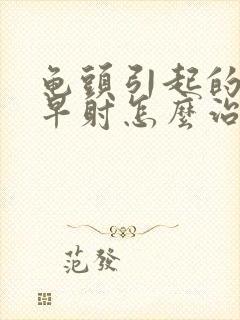 龟頭引起的
早射怎麽治
范發